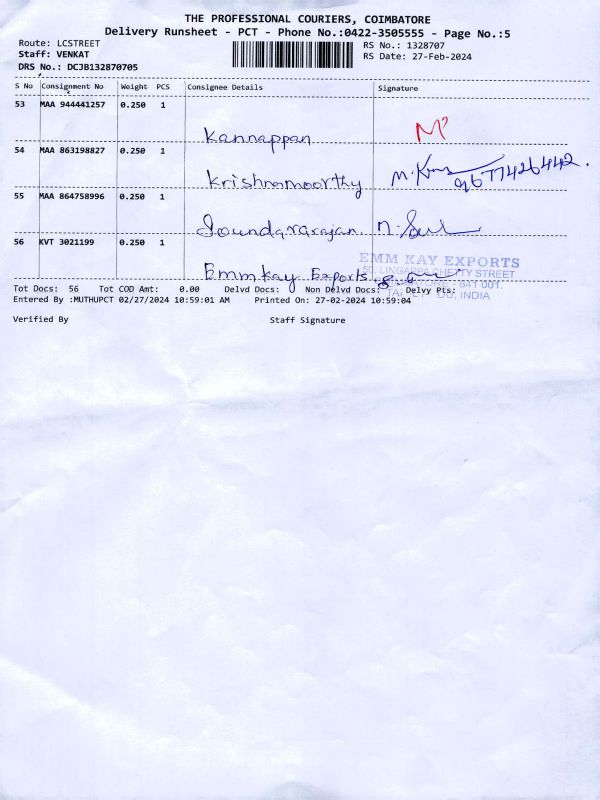 THE PROFESSIONAL COURIERS, COIMBATORE
Delivery Runsheet - PCT - Phone No.:0422-3505555 - Page No.:5
Route: LCSTREET
Staff: VENKAT
DRS No.: DCJB132870705
RS No.: 1328707
RS Date: 27-Feb-2024
S No Consignment No Weight PCS Consignee Details Signature
53 MAA 944441257 0.250 1
Kannappan
54 MAA 863198827 0.250 1
Krishnamoorthy 9677426442.
55 MAA 864758996 0.250 1
Soundararajan.
56 KVT 3021199 0.250 1
Emmkay Exports.
EMM KAY EXPORTS
50, LINGAPPA CHETTY STREET
COIMBATORE - 641 001.
INDIA
Tot Docs: 56 Tot COD Amt: 0.00 Delvd Docs: Non Delvd Docs: Delvy Pts:
Entered By :MUTHUPCT 02/27/2024 10:59:01 AM Printed On: 27-02-2024 10:59:04
Verified By Staff Signature